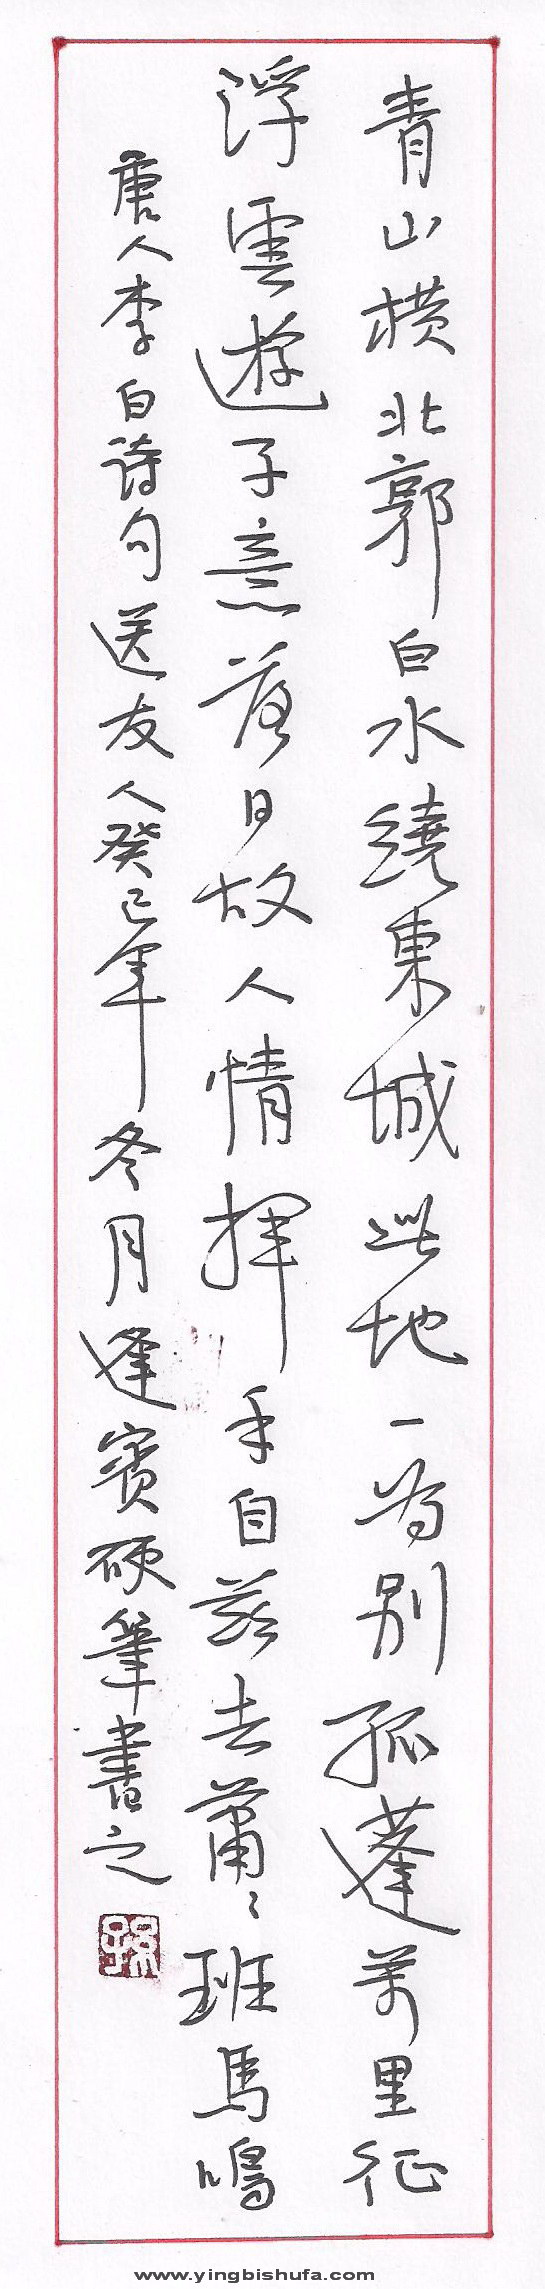 青山橫北郭白水繞東城此地一為別孤蓬萬里征
浮雲遊子意落日故人情揮手自茲去蕭〻班馬鳴
唐人李白詩句送友人癸巳年冬月逢賓硬筆書之
www.yingbishufa.com